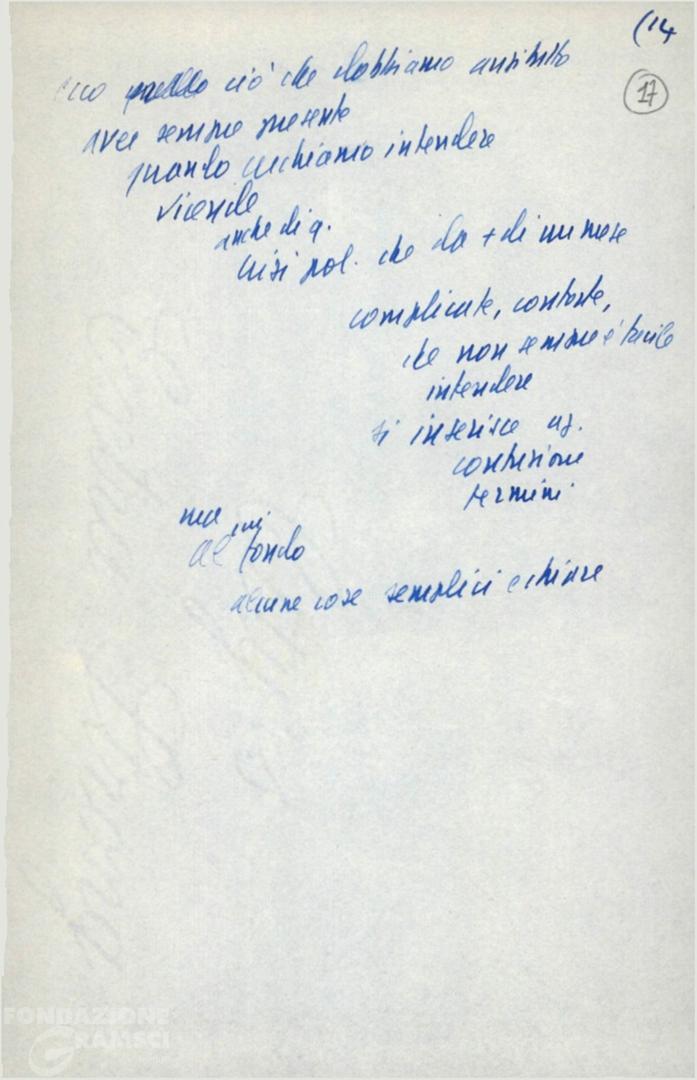 (14
17
ecco quello ciò che dobbiamo anzitutto
aver sempre presente
quando cerchiamo intendere
vicende
anche di q.
crisi pol. che da + di un mese
complicate, contorte,
che non sempre è facile
intendere
si inserisce
confusione
termini
ma
al fondo
alcune cose semplici e chiare
FONDAZIONE
GRAMSCI